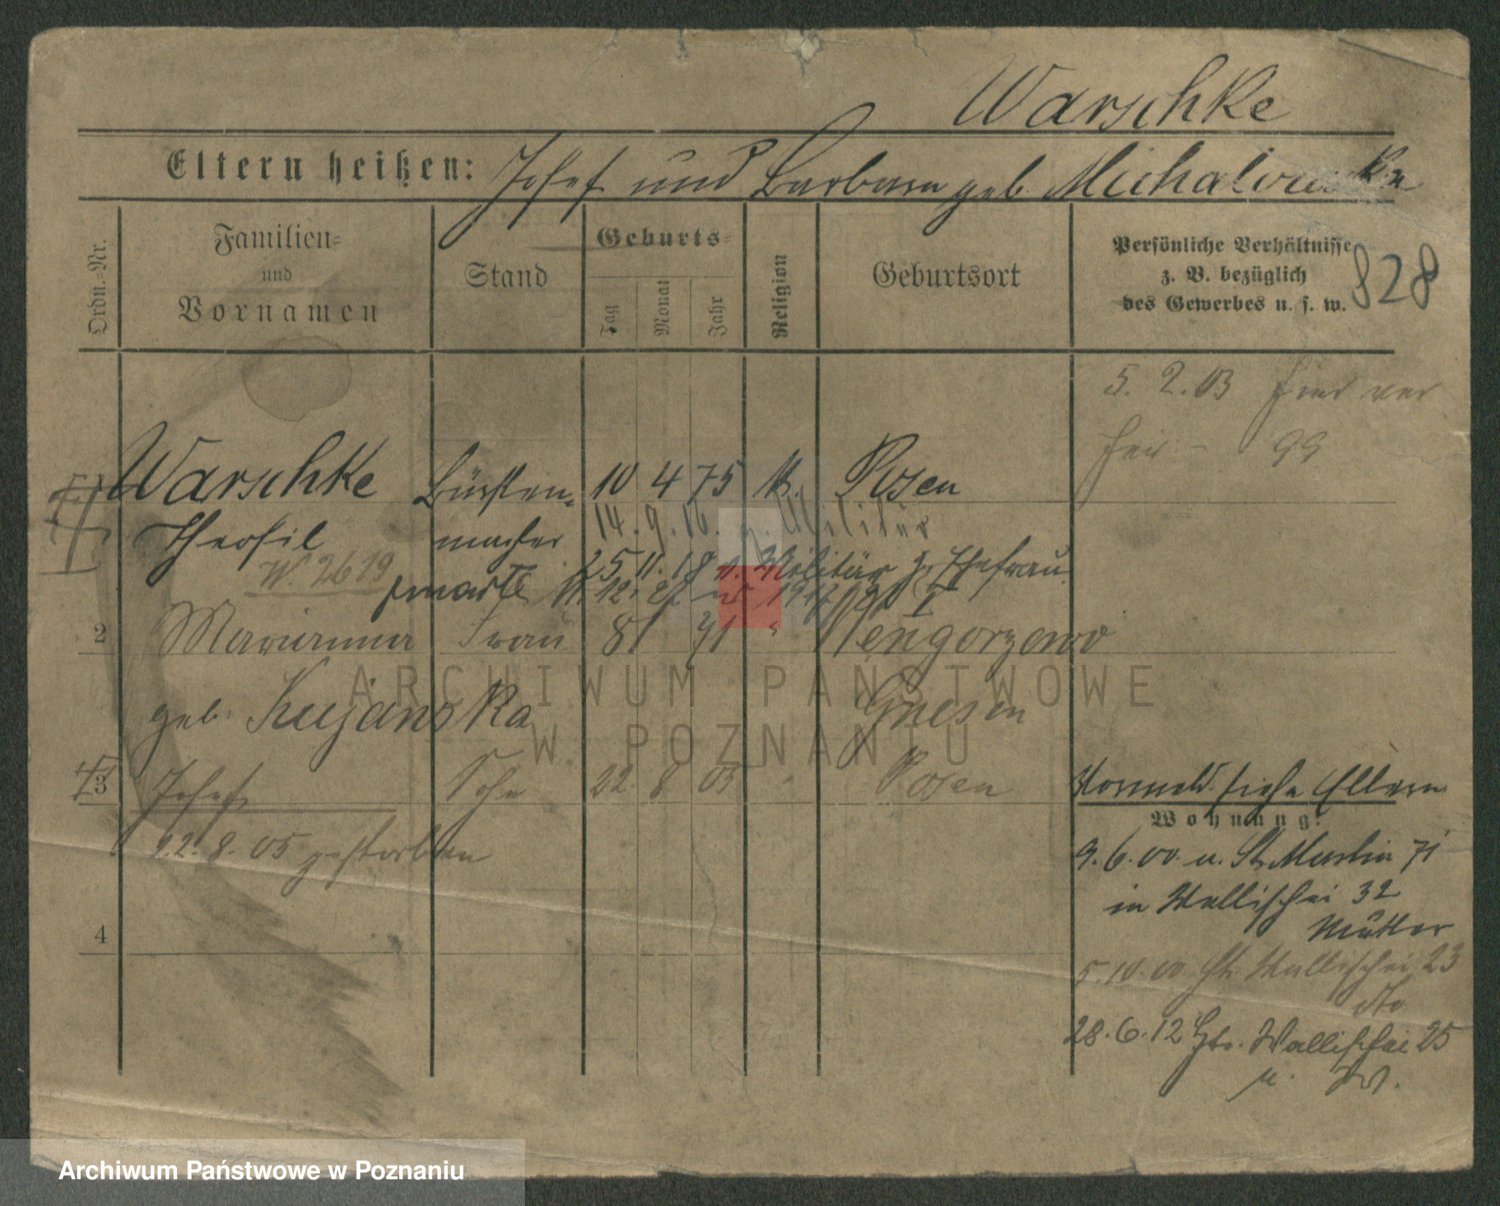 Warschke
Eltern heißen: Josef und Barbara geb. Michalowska
Ordn.-Nr.
Familien-
und
Vornamen
Stand
Geburts-
Tag
Monat
Jahr
Religion
Geburtsort
Persönliche Verhältnisse
z. B. bezüglich
des Gewerbes u. s. w.
828
5. 2. 03
99
Warschke Bürsten- 10 4 75 k. Posen
Theofil macher 14. 9. 16. z. Militär
W. 2619 25 11. 18 v. Militär z. Ehefrau
2 Marianna Frau 8/ 71 " Wengorzewo
geb. Kujawska Gnesen
3 Josef Sohn 22. 8. 03 " Posen
22. 8. 05 gestorben
4
Vormeld. siehe Eltern
Wohnung:
9. 6. 00 u. St. Martin 71
in Wallischei 32
Mutter
5. 10. 00 Wallischei 23
dto
28. 6. 12 Wallischei 25
ARCHIWUM PAŃSTWOWE
W POZNANIU
Archiwum Państwowe w Poznaniu